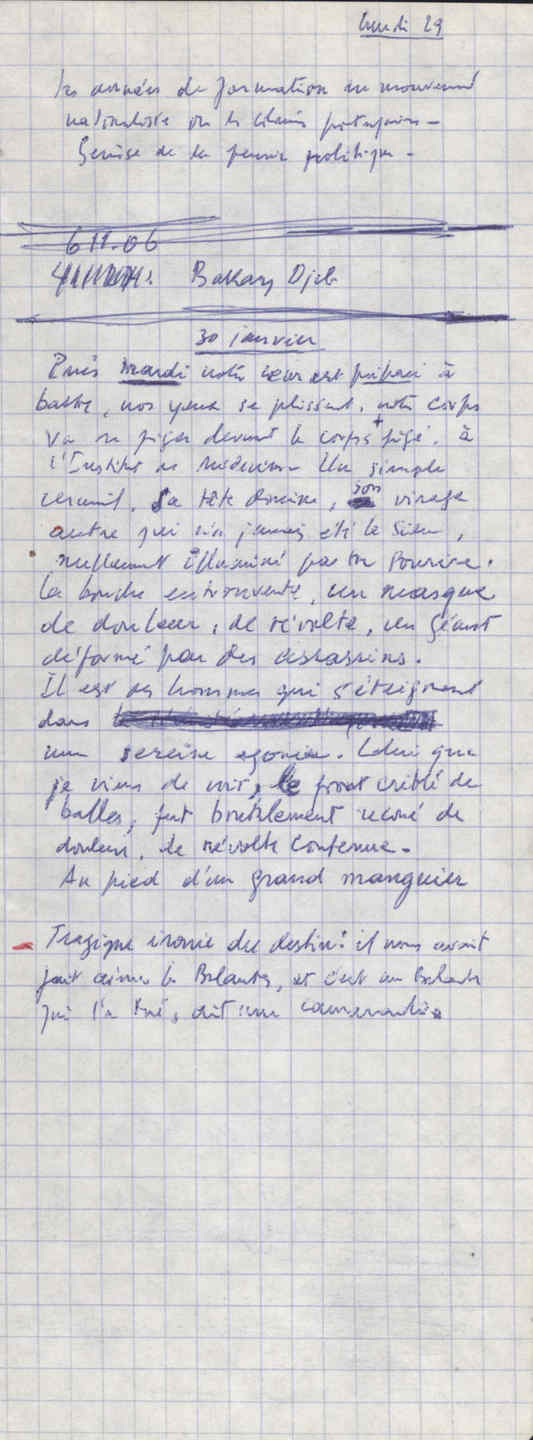 Lundi 29
les années de formation du mouvement
nationaliste ds les colonies portugaises -
Genèse de la pensée politique -
611.06
Bakary Djib
30 janvier
Puis mardi notre cœur est préparé à
battre, nos yeux se plissent, notre corps
va se figer devant le corps figé, à
l'Institut de Médecine. Un simple
cercueil, sa tête bouclée, son visage
autre qui n'a jamais été le sien,
nullement illuminé par un sourire.
La bouche entrouverte, un masque
de douleur, de révolte, un géant
déformé par des assassins.
Il est des hommes qui s'éteignent
dans
une sereine agonie. Celui que
je viens de voir, le front criblé de
balles, fut brutalement secoué de
douleur, de révolte contenue.
Au pied d'un grand manguier
- Tragique ironie du destin : il nous avait
fait aimer les Balantes, et c'est un Balante
qui l'a tué, dit une camarade.